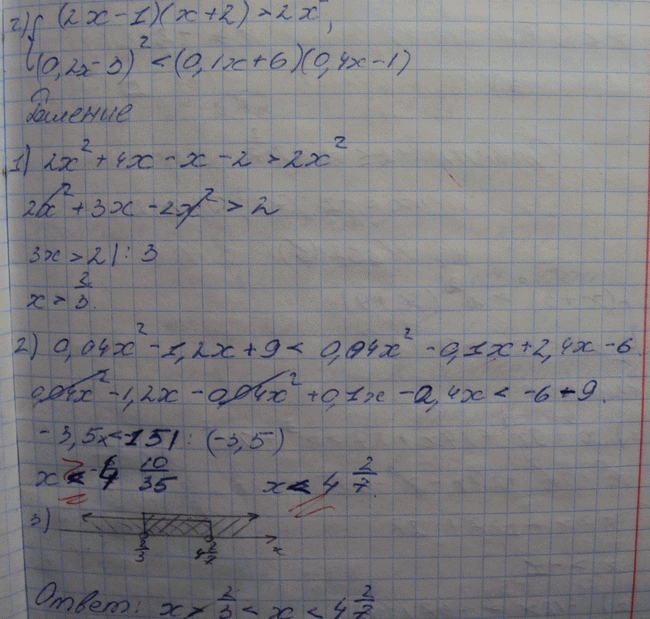 2) { (2x-1)(x+2) > 2x²,
(0,2x-3)² < (0,1x+6)(0,4x-1)
1) 2x² + 4x - x - 2 > 2x²
2x² + 3x - 2x² > 2
3x > 2 | : 3
x > 2/3.
2) 0,04x² - 1,2x + 9 < 0,04x² - 0,1x + 2,4x - 6
0,04x² - 1,2x - 0,04x² + 0,1x - 2,4x < -6 - 9.
-3,5x < -15 | : (-3,5)
x < 4 10/35 x < 4 2/7.
3) 2/3 4 2/7 x
Ответ: x > 2/3 < x < 4 2/7